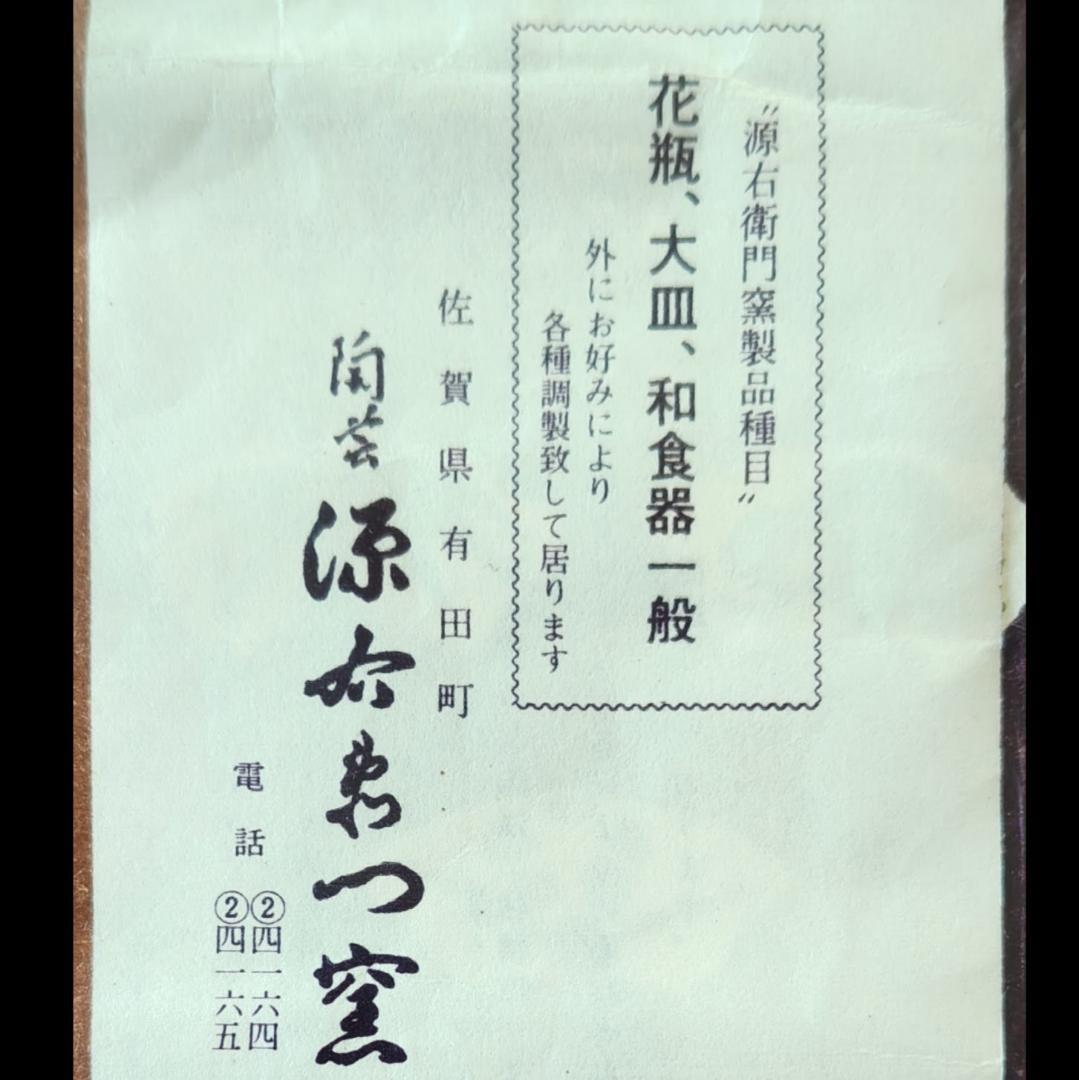 〝源右衛門窯製品種目〟
花瓶、大皿、和食器一般
外にお好みにより
各種調製致して居ります
佐賀県有田町
陶芸源右衛門窯
電話②四一六四
②四一六五